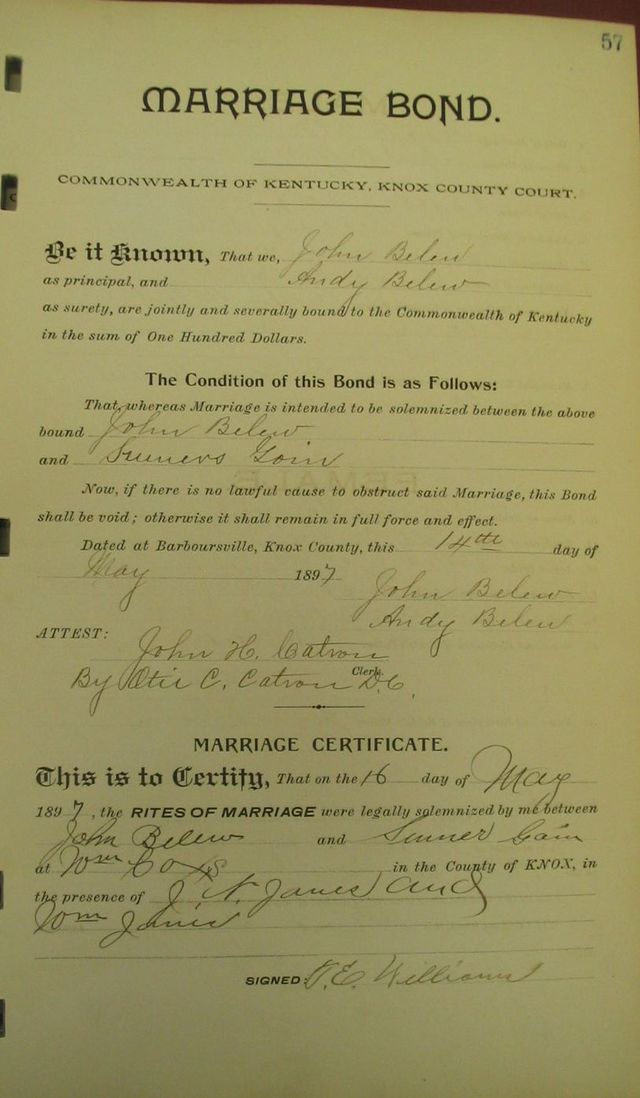 57
MARRIAGE BOND.
COMMONWEALTH OF KENTUCKY, KNOX COUNTY COURT.
Be it Known, That we, John Belew
as principal, and Andy Belew
as surety, are jointly and severally bound to the Commonwealth of Kentucky
in the sum of One Hundred Dollars.
The Condition of this Bond is as Follows:
That, whereas Marriage is intended to be solemnized between the above
bound John Belew
and Sumers Goin
Now, if there is no lawful cause to obstruct said Marriage, this Bond
shall be void; otherwise it shall remain in full force and effect.
Dated at Barboursville, Knox County, this 14th day of
May 1897
John Belew
Andy Belew
ATTEST:
John H. Catron
Clerk
By C. Catron D.C.
MARRIAGE CERTIFICATE.
This is to Certify, That on the 16 day of May
1897, the RITES OF MARRIAGE were legally solemnized by me between
John Belew and Sumer Goin
at Wm Coxs in the County of KNOX, in
the presence of J. N. and
Wm
SIGNED: Williams